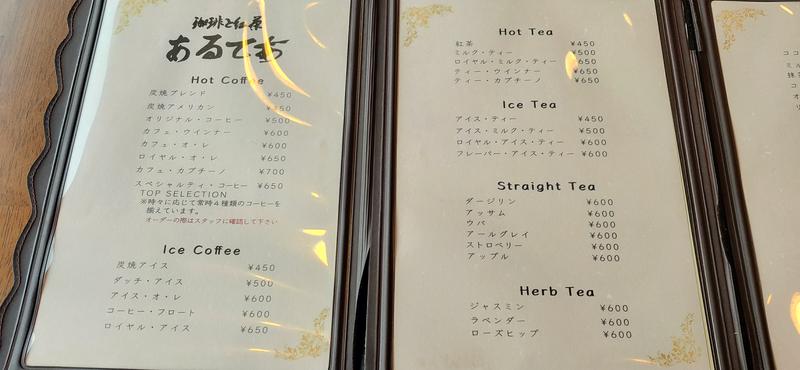 珈琲と紅茶
あるてぃ
Hot Coffee
炭焼ブレンド ¥450
炭焼アメリカン ¥450
オリジナル・コーヒー ¥500
カフェ・ウインナー ¥600
カフェ・オ・レ ¥600
ロイヤル・オ・レ ¥650
カフェ・カプチーノ ¥700
スペシャルティ・コーヒー ¥650
TOP SELECTION
※時々に応じて常時4種類のコーヒーを
揃えています。
オーダーの際はスタッフに確認して下さい
Ice Coffee
炭焼アイス ¥450
ダッチ・アイス ¥500
アイス・オ・レ ¥600
コーヒー・フロート ¥600
ロイヤル・アイス ¥650
Hot Tea
紅茶 ¥450
ミルク・ティー ¥500
ロイヤル・ミルク・ティー ¥600
ティー・ウインナー ¥650
ティー・カプチーノ ¥650
Ice Tea
アイス・ティー ¥450
アイス・ミルク・ティー ¥500
ロイヤル・アイス・ティー ¥600
フレーバー・アイス・ティー ¥600
Straight Tea
ダージリン ¥600
アッサム ¥600
ウバ ¥600
アールグレイ ¥600
ストロベリー ¥600
アップル ¥600
Herb Tea
ジャスミン ¥600
ラベンダー ¥600
ローズヒップ ¥600
ココ
ミル
抹
コ